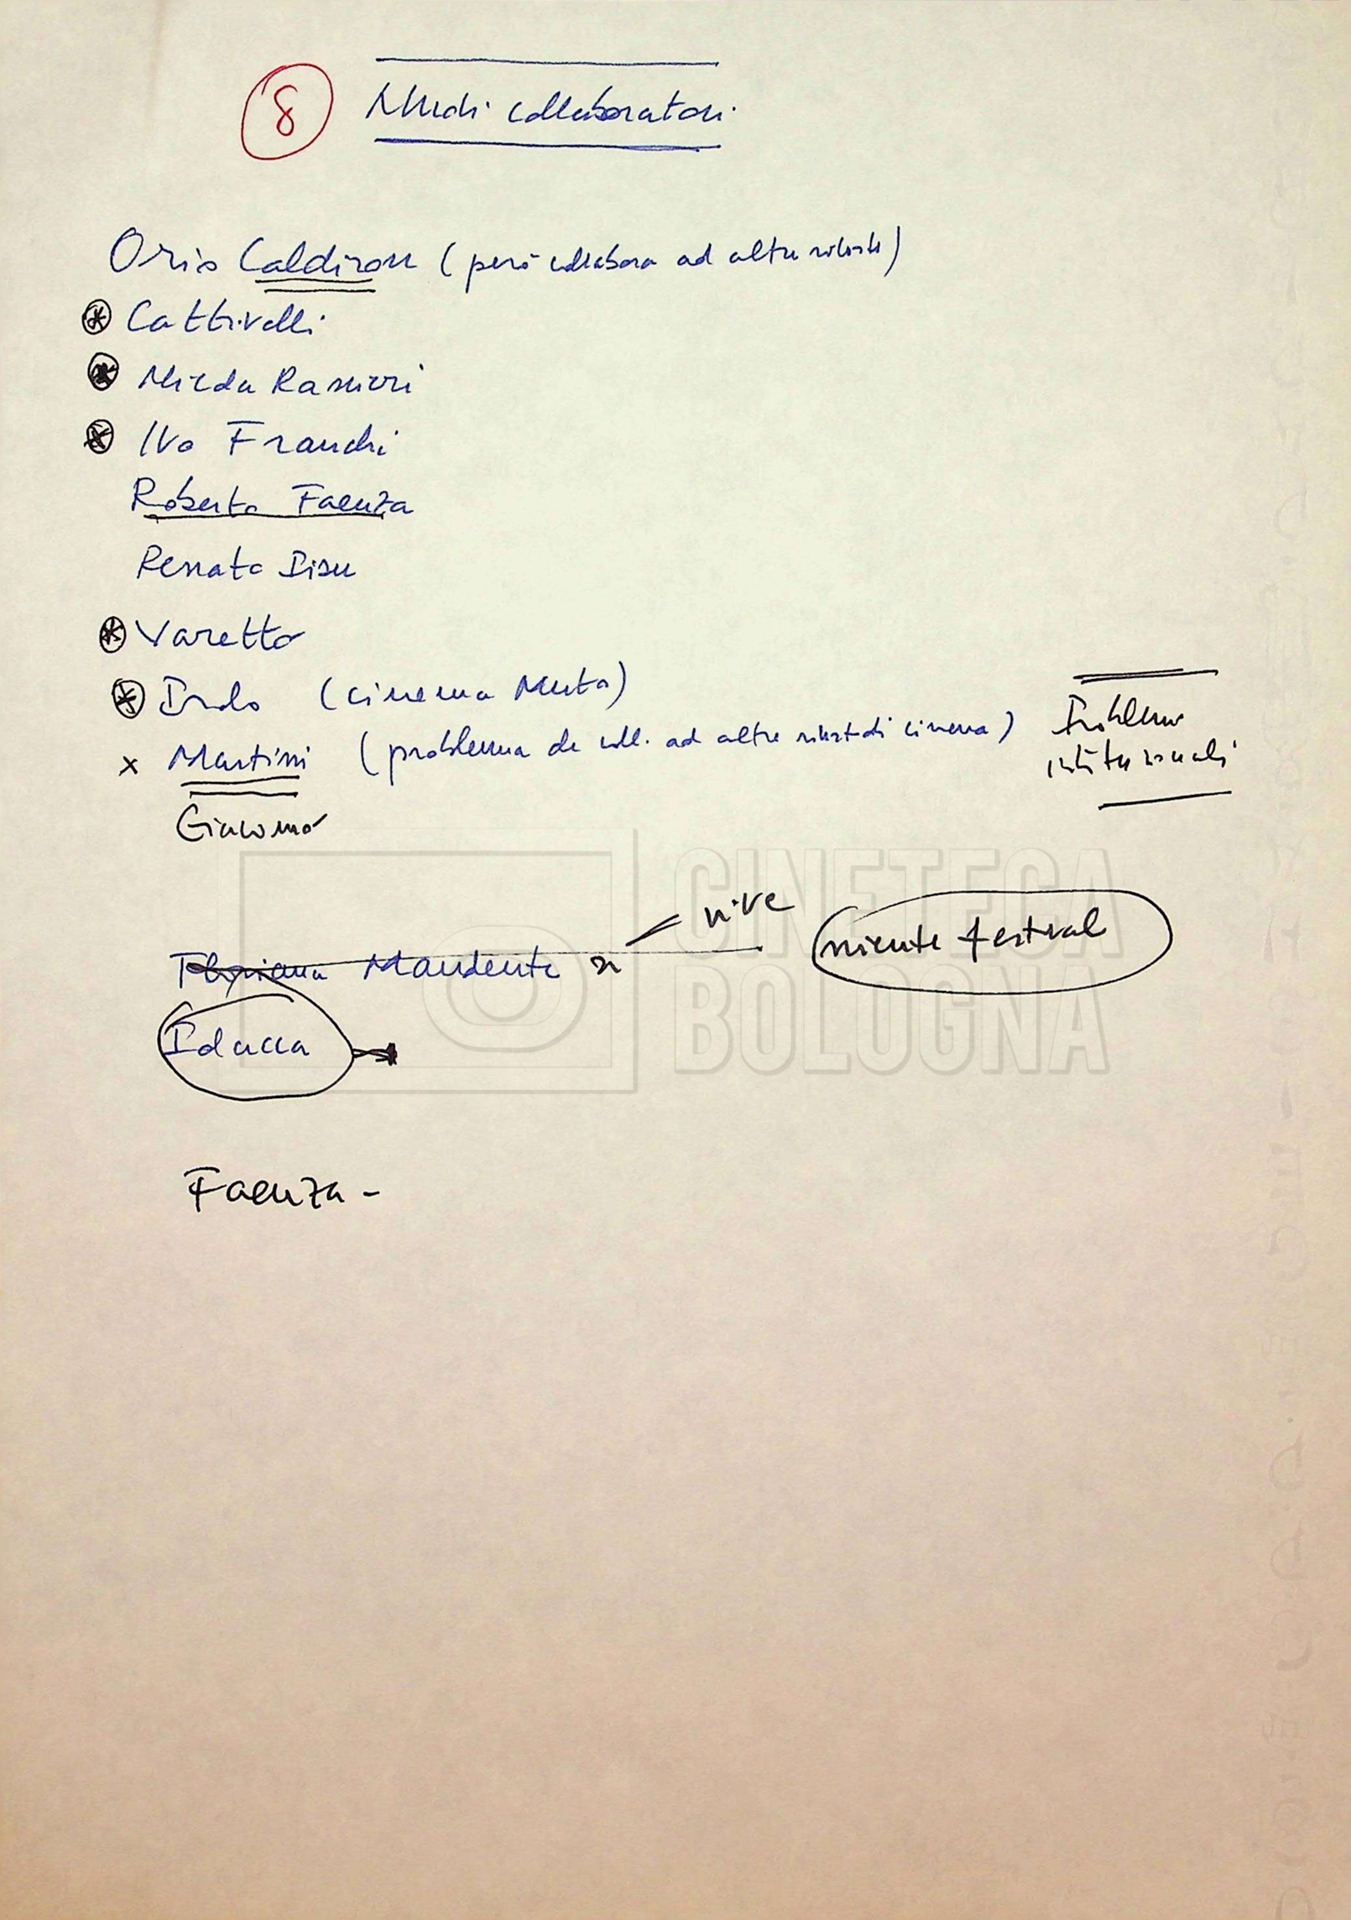 8 collaboratori
Orio Caldiron (però collabora ad altre riviste)
Cattivelli
Ranieri
Ivo Franchi
Roberto Faenza
Renato
Varetto
(cinema Muto)
x Martini (problema di coll. ad altre rivist di cinema)
Problemi
istituzionali
Giacomo
vive
niente festival
Idacca
Faenza -
CINETECA
BOLOGNA